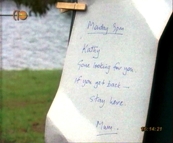 Monday 5pm
Kathy
Gone looking for you
If you get back...
Stay here.
Mam.
14:21